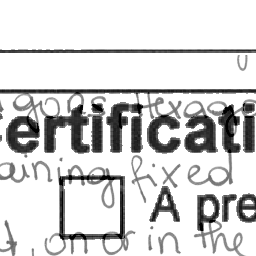 gons Hexago
ertificati
aining fixed
A pre
t, on or in the